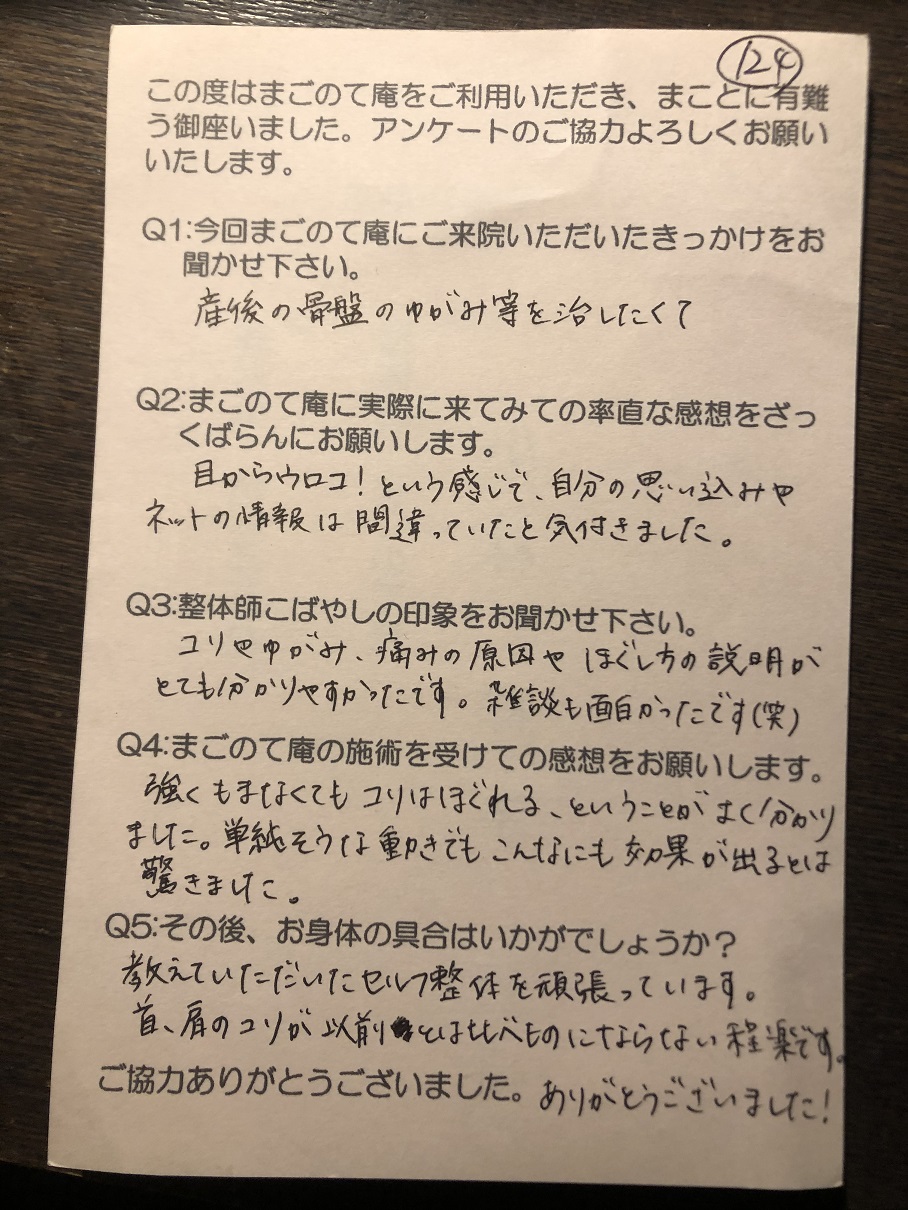 124
この度はまごのて庵をご利用いただき、まことに有難
う御座いました。アンケートのご協力よろしくお願い
いたします。
Q1:今回まごのて庵にご来院いただいたきっかけをお
聞かせ下さい。
産後の骨盤のゆがみ等を治したくて
Q2:まごのて庵に実際に来てみての率直な感想をざっ
くばらんにお願いします。
目からウロコ!という感じで、自分の思い込みや
ネットの情報は間違っていたと気付きました。
Q3:整体師こばやしの印象をお聞かせ下さい。
コリやゆがみ、痛みの原因やほぐし方の説明が
とても分かりやすかったです。雑談も面白かったです(笑)
Q4:まごのて庵の施術を受けての感想をお願いします。
強くもまなくてもコリはほぐれる、ということがよく分かり
ました。単純そうな動きでもこんなにも効果が出るとは
驚きました。
Q5:その後、お身体の具合はいかがでしょうか?
教えていただいたセルフ整体を頑張っています。
首、肩のコリが以前とは比べものにならない程楽です。
ご協力ありがとうございました。ありがとうございました!